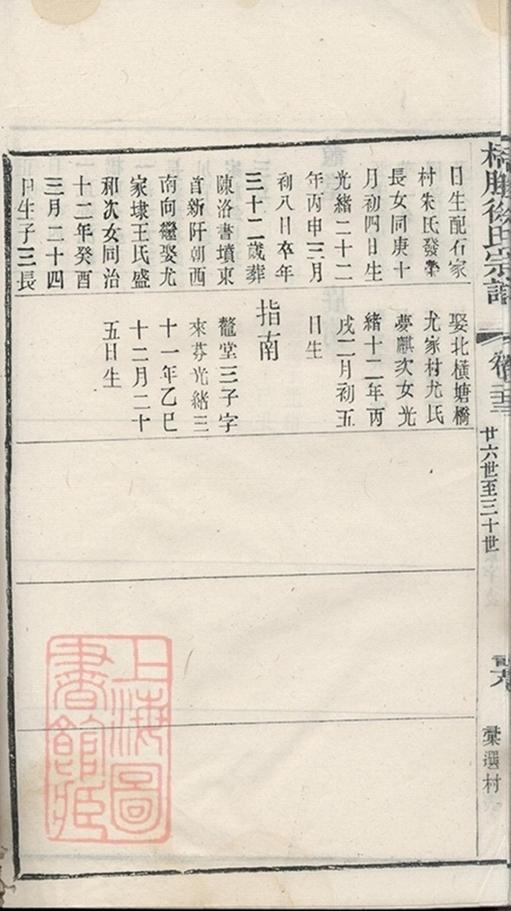 日生配石家
村朱氏發
長女同庚十
月初四日生
光緒二十二
年丙申三月
初八日卒年
三十二歲葬
陳洛書墳東
首新阡朝西
南向繼娶尤
家埭王氏盛
和次女同治
十二年癸酉
三月二十四
日生子三長
娶北橫塘橋
尤家村尤氏
夢麒次女光
緒十二年丙
戌二月初五
日生
指南
鼇堂三子字
來芬光緒三
十一年乙巳
十二月二十
五日生
徐氏宗譜
卷
廿六世至三十世
彙選村
上海圖書館藏